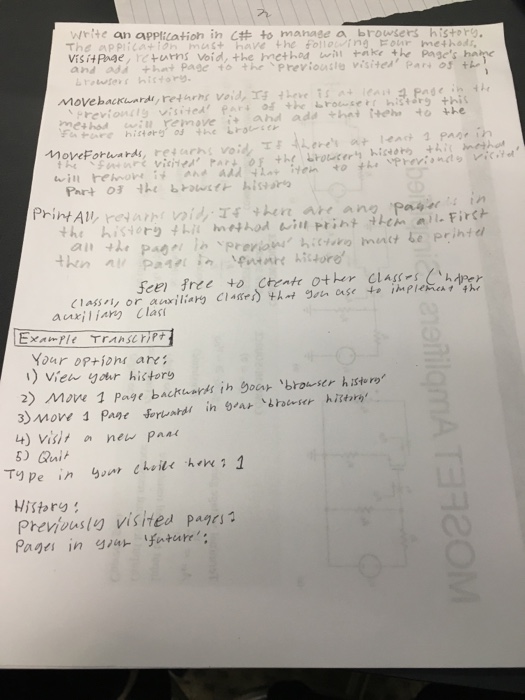 2
Write an application in C# to manage a browsers history.
The application must have the following Four methods.
VisitPage, returns void, the method will take the page's name
and add that page to the 'previously visited' part of the
browsers history.
Movebackwards, returns void, If there is at least 1 page in the
'previously visited' part of the browsers history this
method will remove it and add that item to the
'Future history of the browser
MoveForwards, returns void, If there's at least 1 page in
the 'future visited' part of the browsers history this method
will remove it and add that item to the 'previously
Part of the browser history
PrintAll, returns void, If there are any pages in
the history this method will print them all. First
all the pages in 'previous' history must be printed
then all pages in 'future history'
feel free to create other classes ('helper
classes, or auxiliary classes) that you use to implement the
auxiliary class
Example Transcript
Your options are:
1) View your history
2) Move 1 page backwards in your 'browser history'
3) Move 1 page forwards in your 'browser history'
4) Visit a new
5) Quit
Type in your choice here: 1
History:
Previously visited pages:
Pages in your 'future':
MOSFET Amplifiers